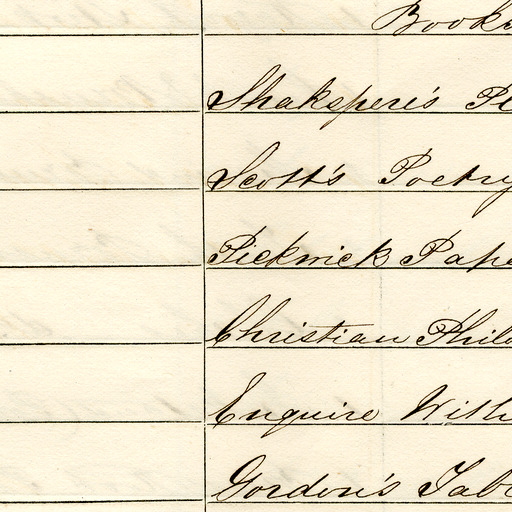 Books
Shakspere's Pl
Scott's Poetry
Pickwick Pape
Christian Philo
Enquire With
Gordon's Tab